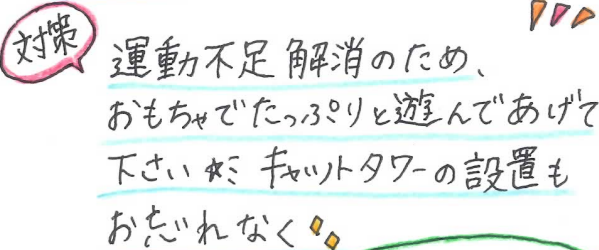 対策
運動不足解消のため、
おもちゃでたっぷりと遊んであげて
下さい☆ミ キャットタワーの設置も
お忘れなく